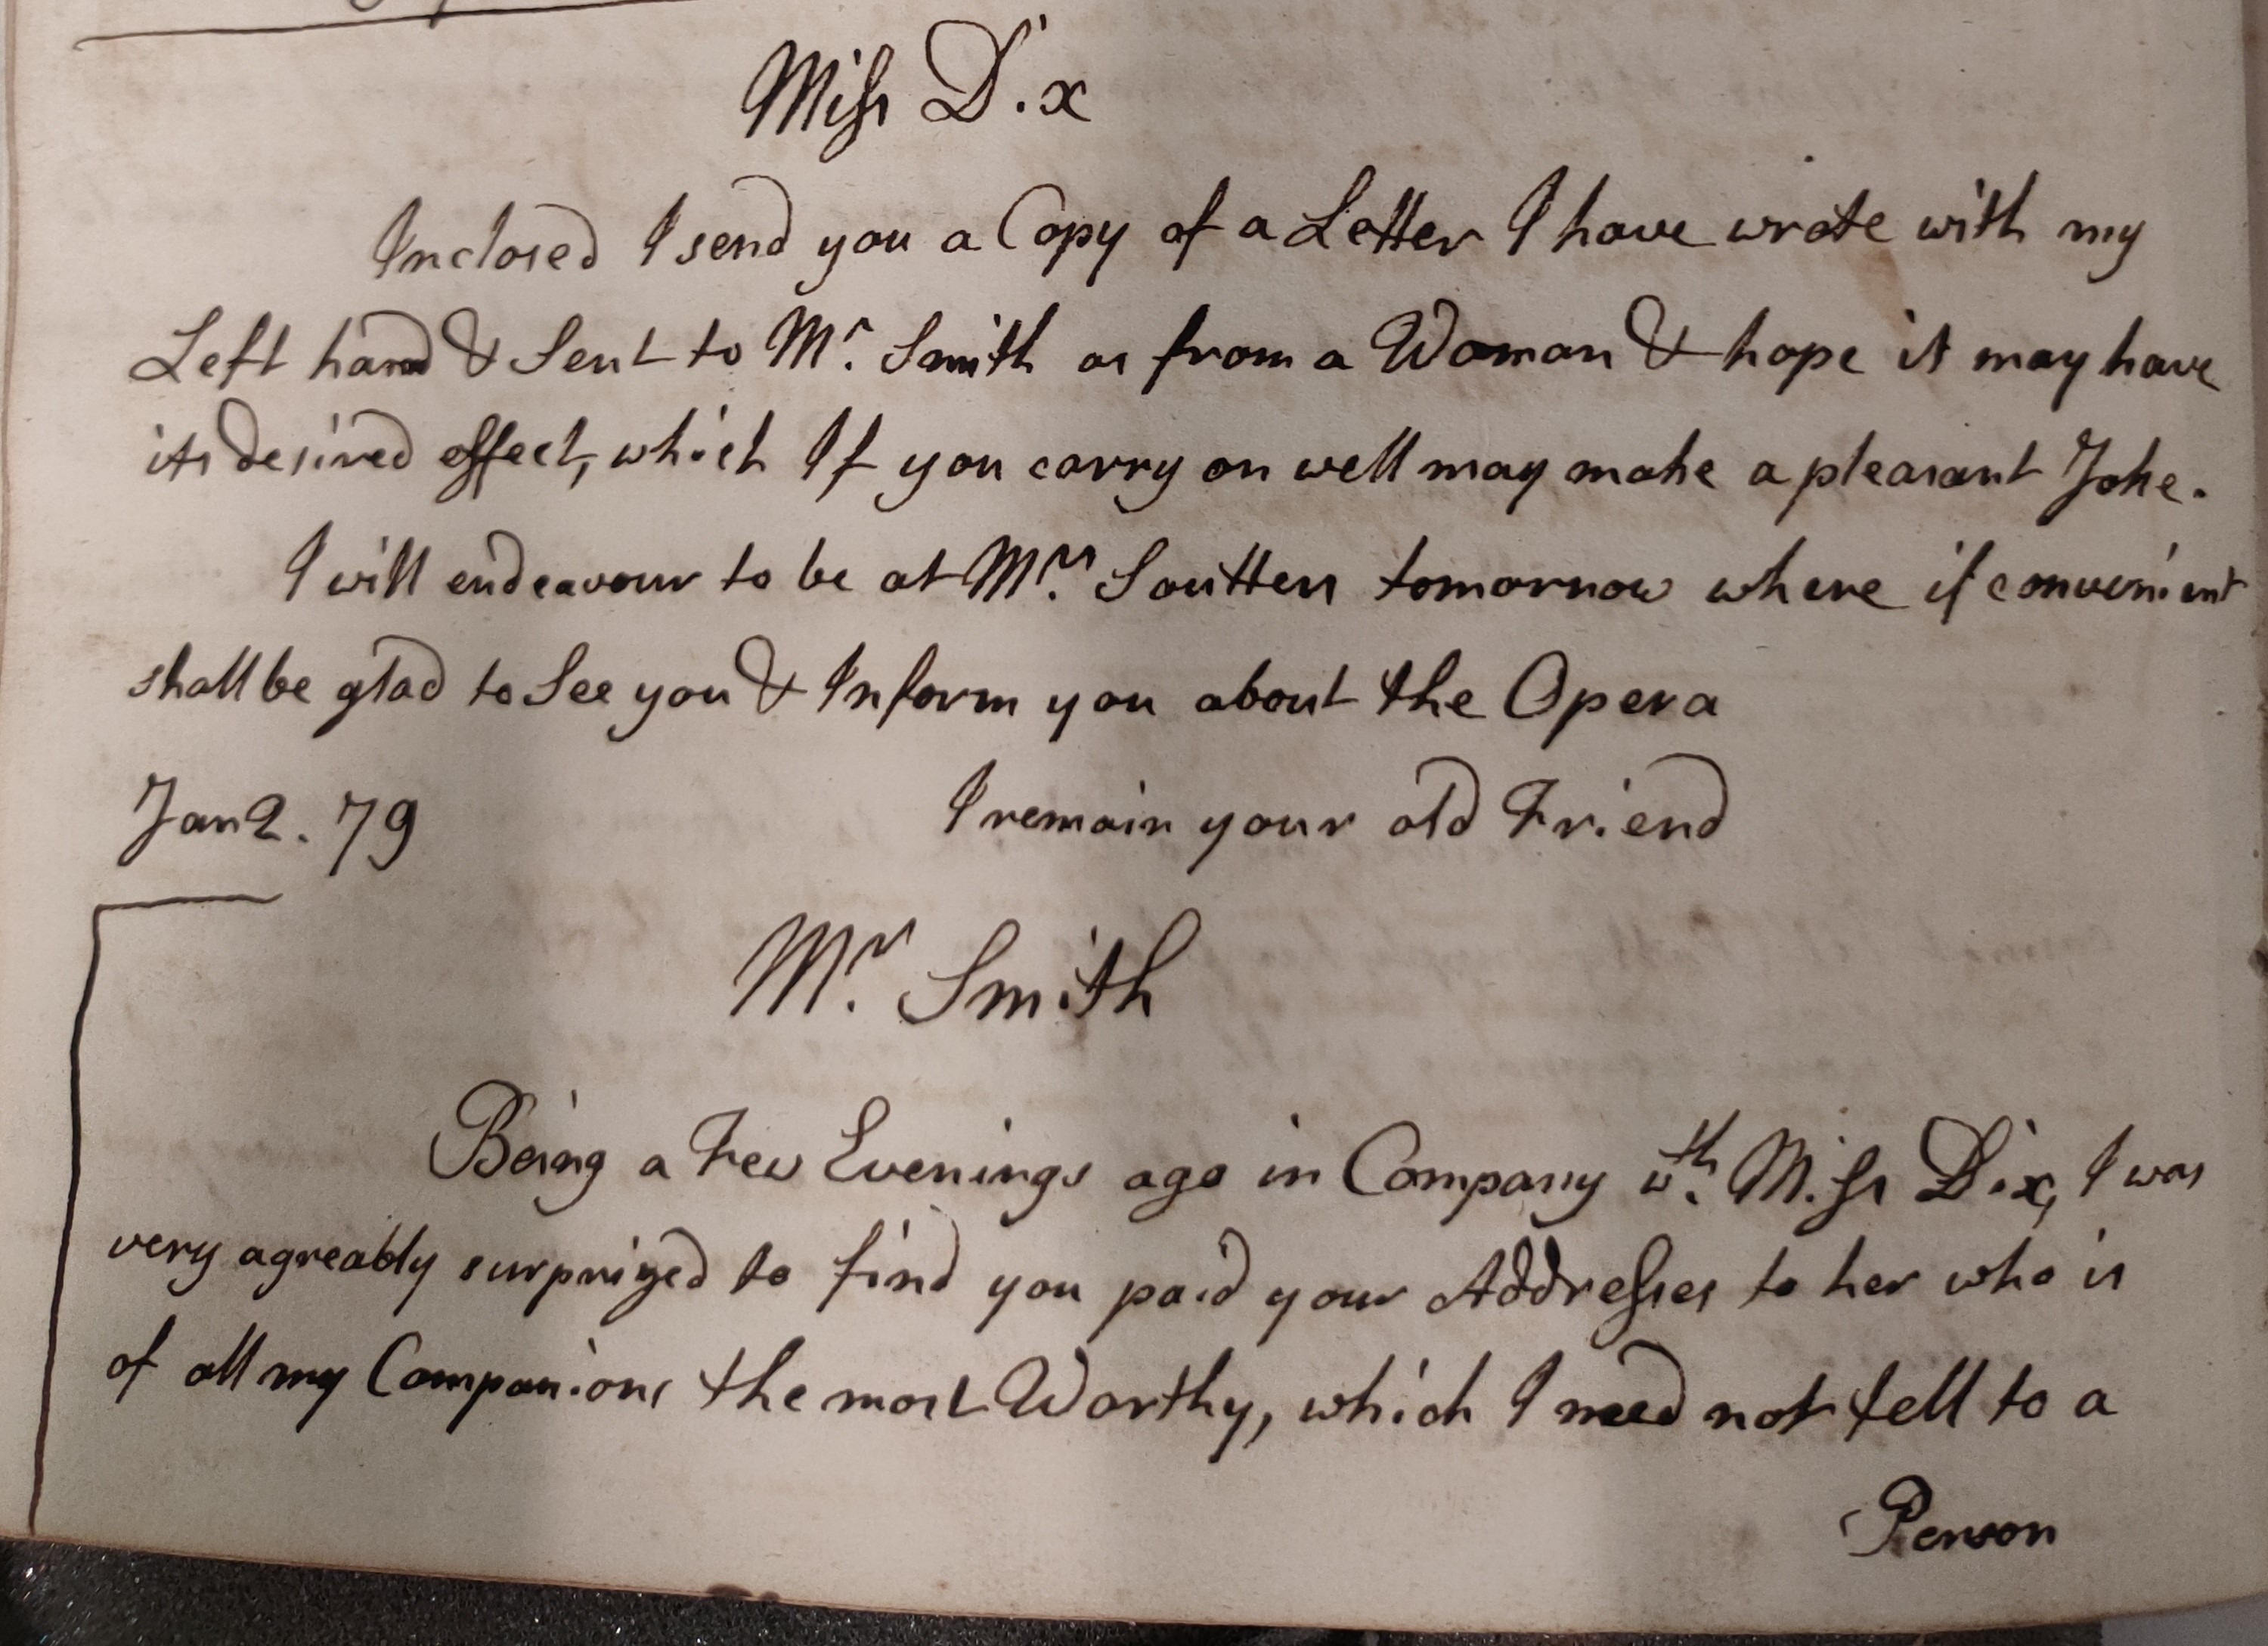 Miss Dix
Inclosed I send you a Copy of a Letter I have wrote with my
Left hand & Sent to Mr. Smith as from a Woman & hope it may have
its desired effect, which If you carry on well may make a pleasant Joke.
I will endeavour to be at Mrs. Souttens tomorrow where if convenient
shall be glad to See you & Inform you about the Opera
Jan 2. 79 I remain your old Friend
Mr. Smith
Being a Few Evenings ago in Company wth. Miss Dix, I was
very agreably surprized to find you paid your Addresses to her who is
of all my Companions the most Worthy, which I need not tell to a
Person